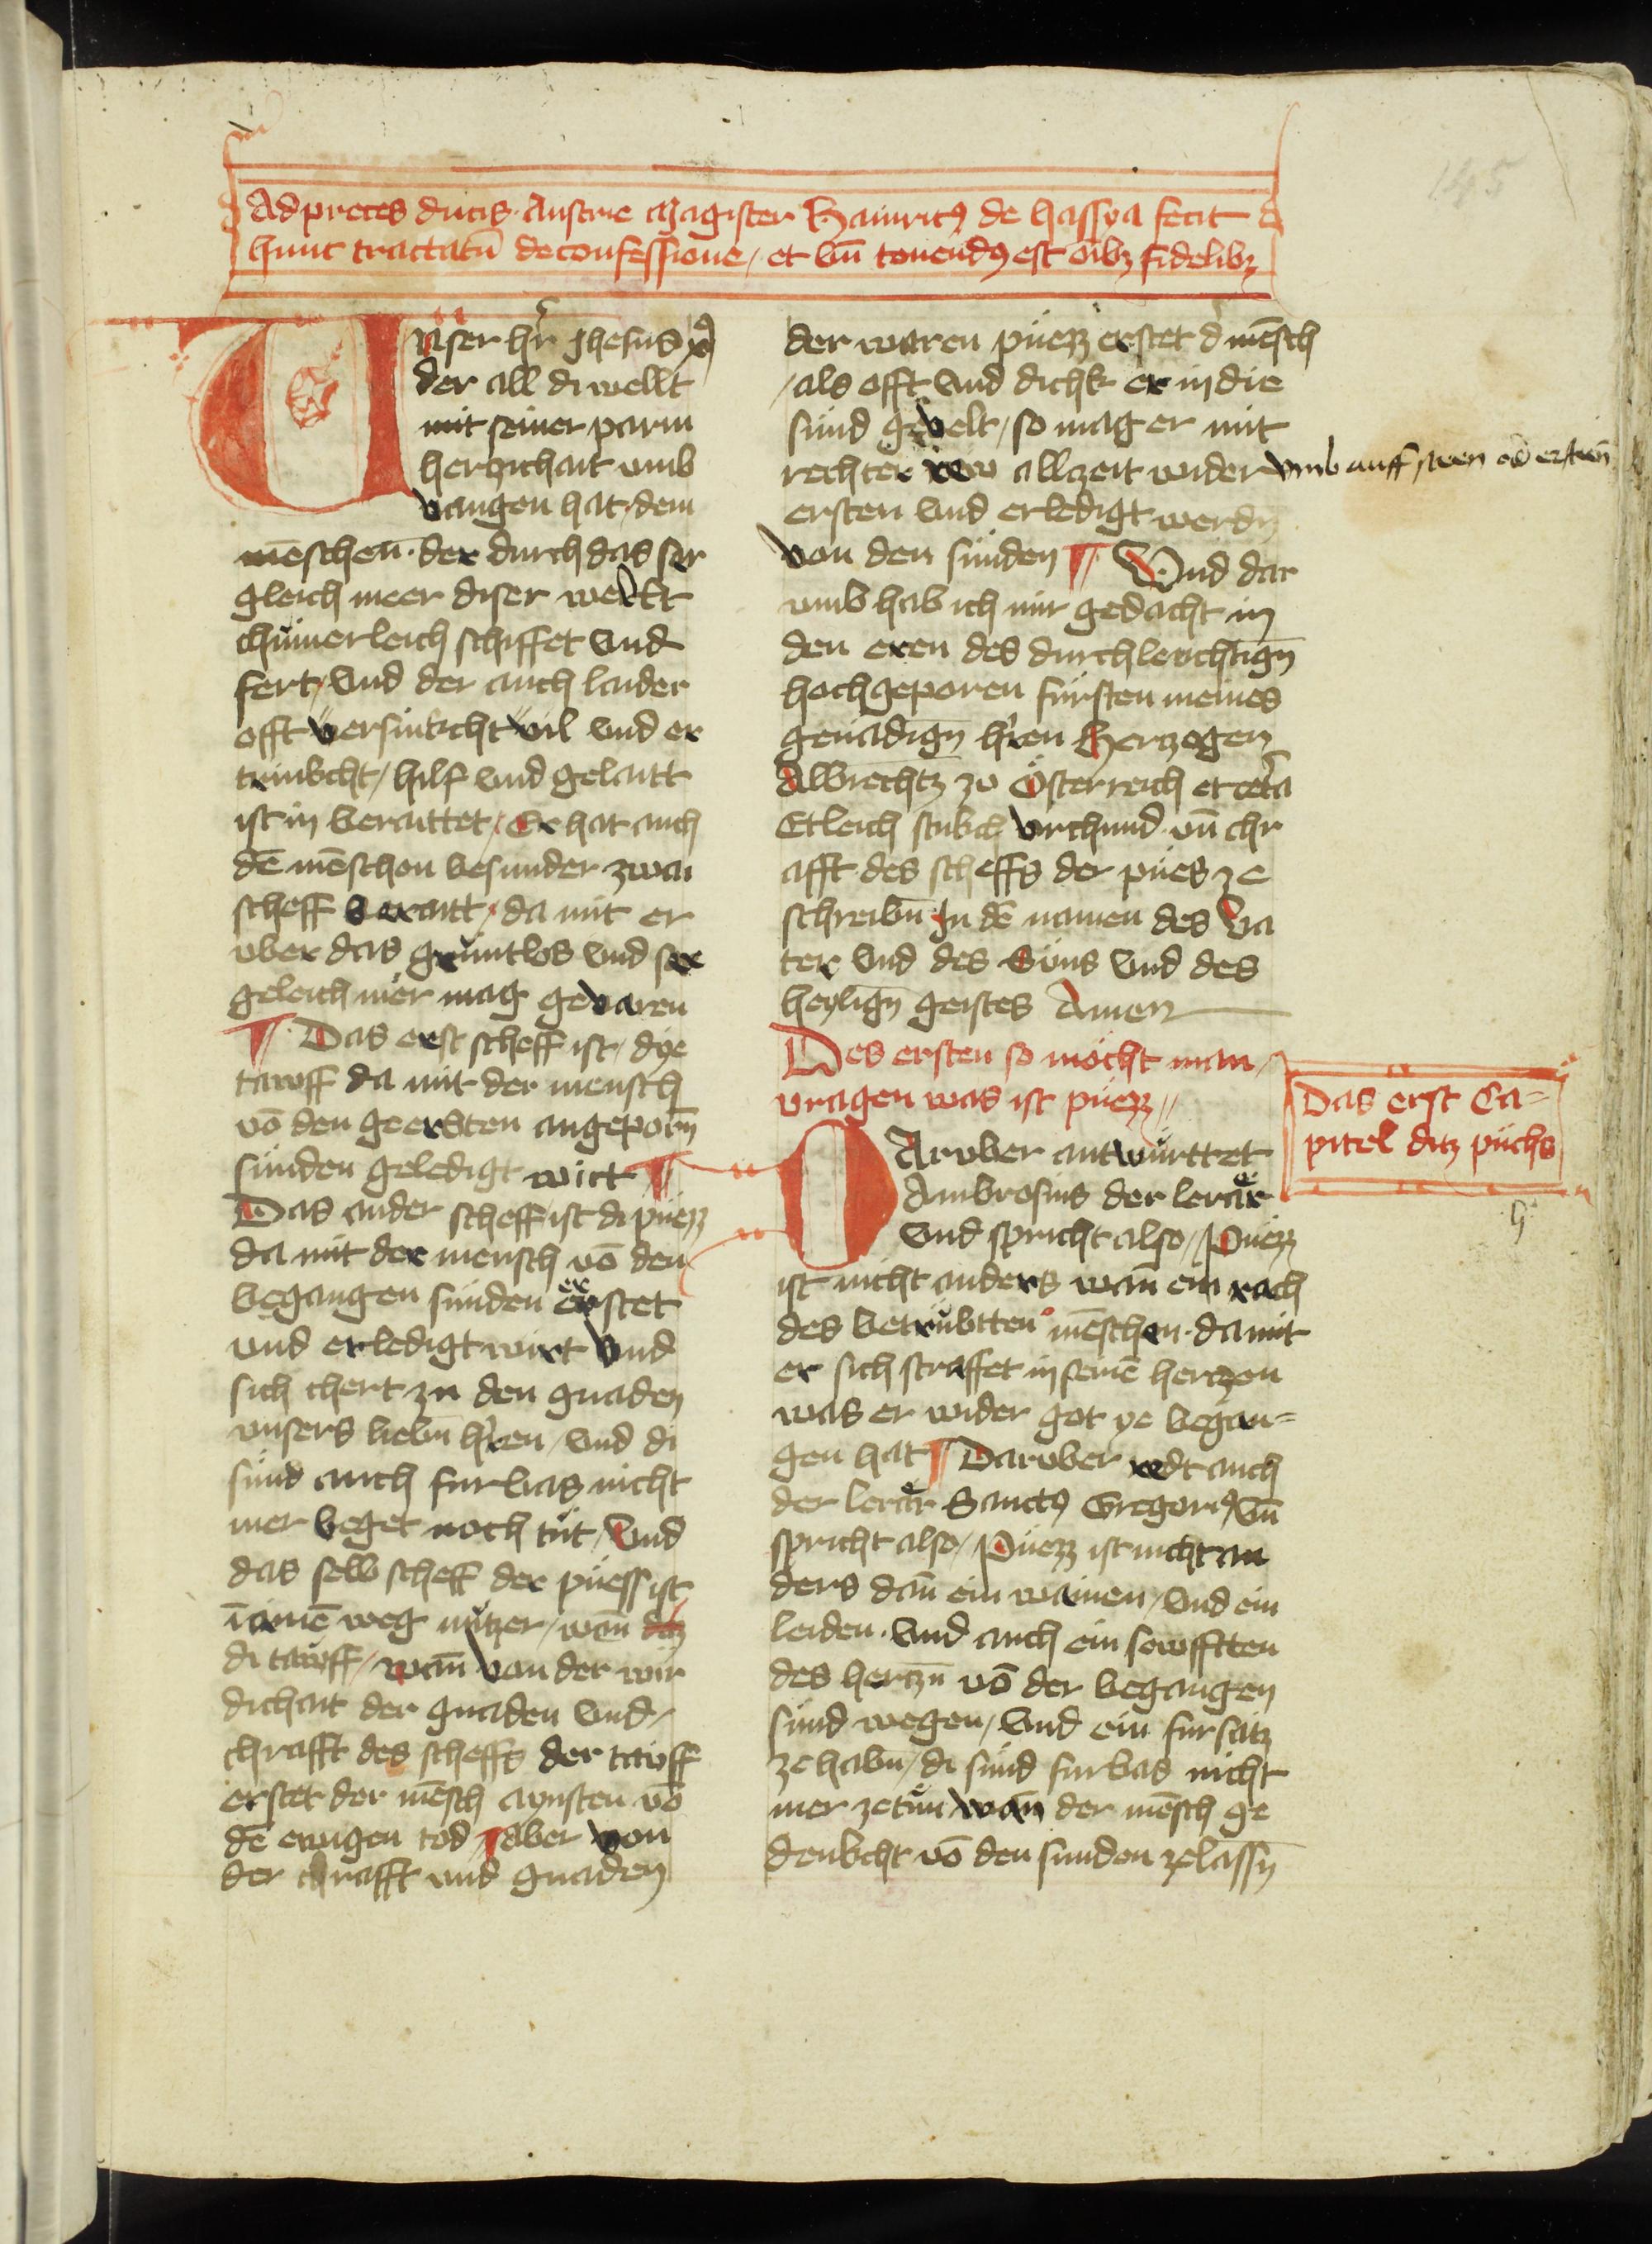 145
Ad preces ducis Austrie Magister Hainricꝯ de hassya fecit
hunc tractatū de confessione / et bn̄ tenendꝯ est oībꝫ fidelibꝫ
Vnser hr̄ Jhesus xꝯ
der all di wellt
mit seiner parm
herczichait vmb
vangen hat / dem
mēschen̄ · der durch das sor
gleich meer diser wellt
chümerleich schiffet vnd
fert / vnd der auch laider
offt versinkcht vil vnd er
trinkcht / hilf vnd gelaitt
ist in beraittet / Er hat auch
dē mēschen besunder zwai
scheff beraitt / da mit er
vber das gruntlos vnd sor
geleich mer mag gevaren
¶ Das erst scheff ist / dye
tawff da mit der mensch
vō den geerbten angeporn̄
sünden geledigt wirt ¶
Das ander scheff ist di püezz
da mit der mensch vō den
begangen sünden erstet
vnd erledigt wirt vnd
sich chert zu den gnaden
vnsers liebn̄ hr̄en / vnd di
sünd auch furbas nicht
mer beget noch tüt / vnd
das selb scheff der püess ist
in ainē weg nützer / wan̄ daz
di tawff / wan̄ von der wir
dichait der gnaden vnd /
chrafft des scheffs der tawff
erstet der mēsch aynsten vō
dē ewigen tod ¶ aber von
der chrafft vnd gnaden
der waren püezz erstet d̄ mēsch
/ als offt vnd dichk er in die
sünd gevelt / so mag er mit
rechter rew allzeit wider vmb auff sten od̄ ersten̄
ersten vnd erledigt werdn̄
von den sünden ¶ Vnd dar
vmb hab ich mir gedacht in
den eren des durchleichtign̄
hochgeporen fürsten meines
genadign̄ hr̄en Herczogen
Albrechtz zu Österreich et cet̄a
Etleich stukch vrchund vn̄ chr
afft des scheffs der püesz ze
schreibn̄ In dē namen des Va
ter vnd des Suns vnd des
heylign̄ geistes Amen
Des ersten so möcht man /
vragen was ist püezz //
Das erst Ca=
pitel ditz püchs
DArvber antwürttet
Ambrosius der lerär
vnd spricht also / Püezz
ist nicht anders wan̄ ein rach
des betrübtten mēschen · da mit
er sich straffet in seinē herczen
was er wider got ye began=
gen hat ¶ Darvber redt auch
der lerär Sanctꝯ Gregoriꝯ / vn̄
spricht also / Püezz ist nicht an
ders dan̄ ein wainen / vnd ein
leiden · vnd auch ein sewfftten
des hercẓn̄ vō der begangen
sünd wegen / vnd ein fürsatz
ze habn̄ / di sünd furbas nicht
mer ze tün wan̄ der mēsch ge
denkcht vō den sunden ze lassn̄